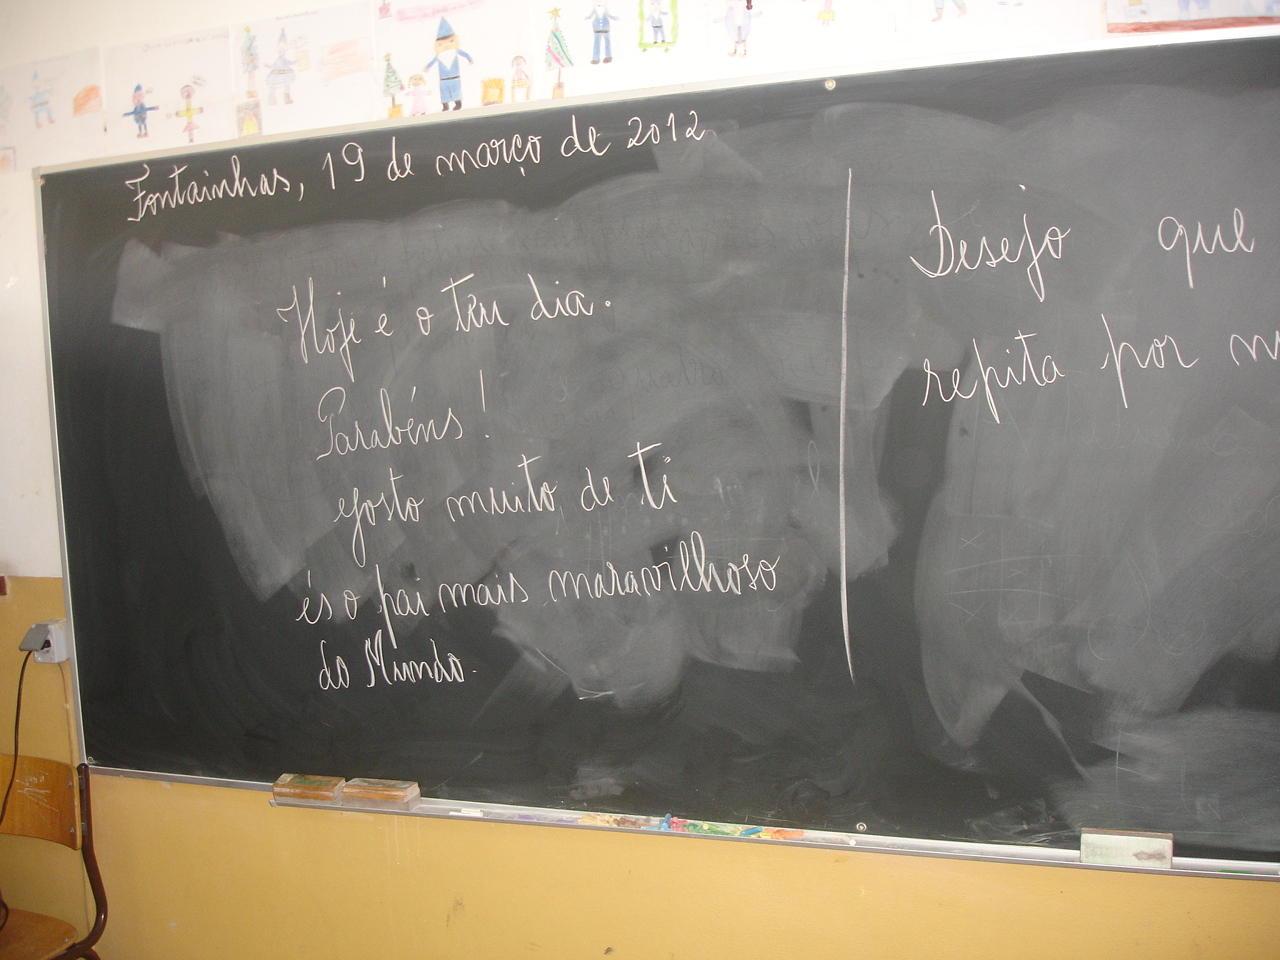 Fontainhas, 19 de março de 2012
Hoje é o teu dia.
Parabéns!
gosto muito de ti
és o pai mais maravilhoso
do Mundo.
Desejo que
repita por